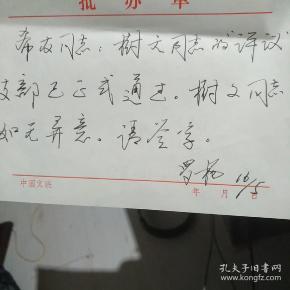 批办单
希友同志：树文同志的评议
支部已正式通过。树文同志
如无异意。请签字。
罗杨 16/5
中国文联 年 月 日
孔夫子旧书网